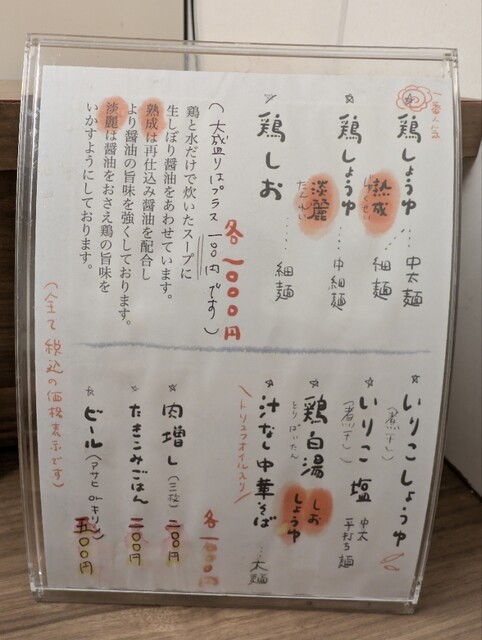 一番人気
鶏しょうゆ 熟成 じゅくせい … 中太麺 細麺
☆鶏しょうゆ 淡麗 たんれい … 中細麺
鶏しお … 細麺
各一〇〇〇円
(大盛りはプラス一〇〇円です)
鶏と水だけで炊いたスープに
生しぼり醤油をあわせています。
熟成は再仕込み醤油を配合し
より醤油の旨味を強くしております。
淡麗は醤油をおさえ鶏の旨味を
いかすようにしております。
☆いりこしょうゆ
(煮干し)
☆いりこ塩 中太 平打ち麺
(煮干し)
☆鶏白湯 しお しょうゆ
とりぱいたん
☆汁なし中華そば … 太麺
\トリュフオイル入り/
各一〇〇〇円
☆肉増し(三枚)二〇〇円
☆たきこみごはん 二〇〇円
☆ビール(アサヒorキリン) 五〇〇円
(全て税込の価格表示です)